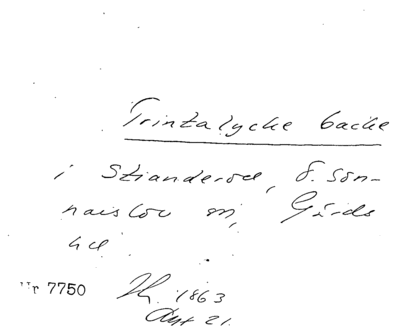 Trintalycke backe
i Stianderød, Ö. Sön-
narslöv sn, Gärds
hd
Nr 7750
1863